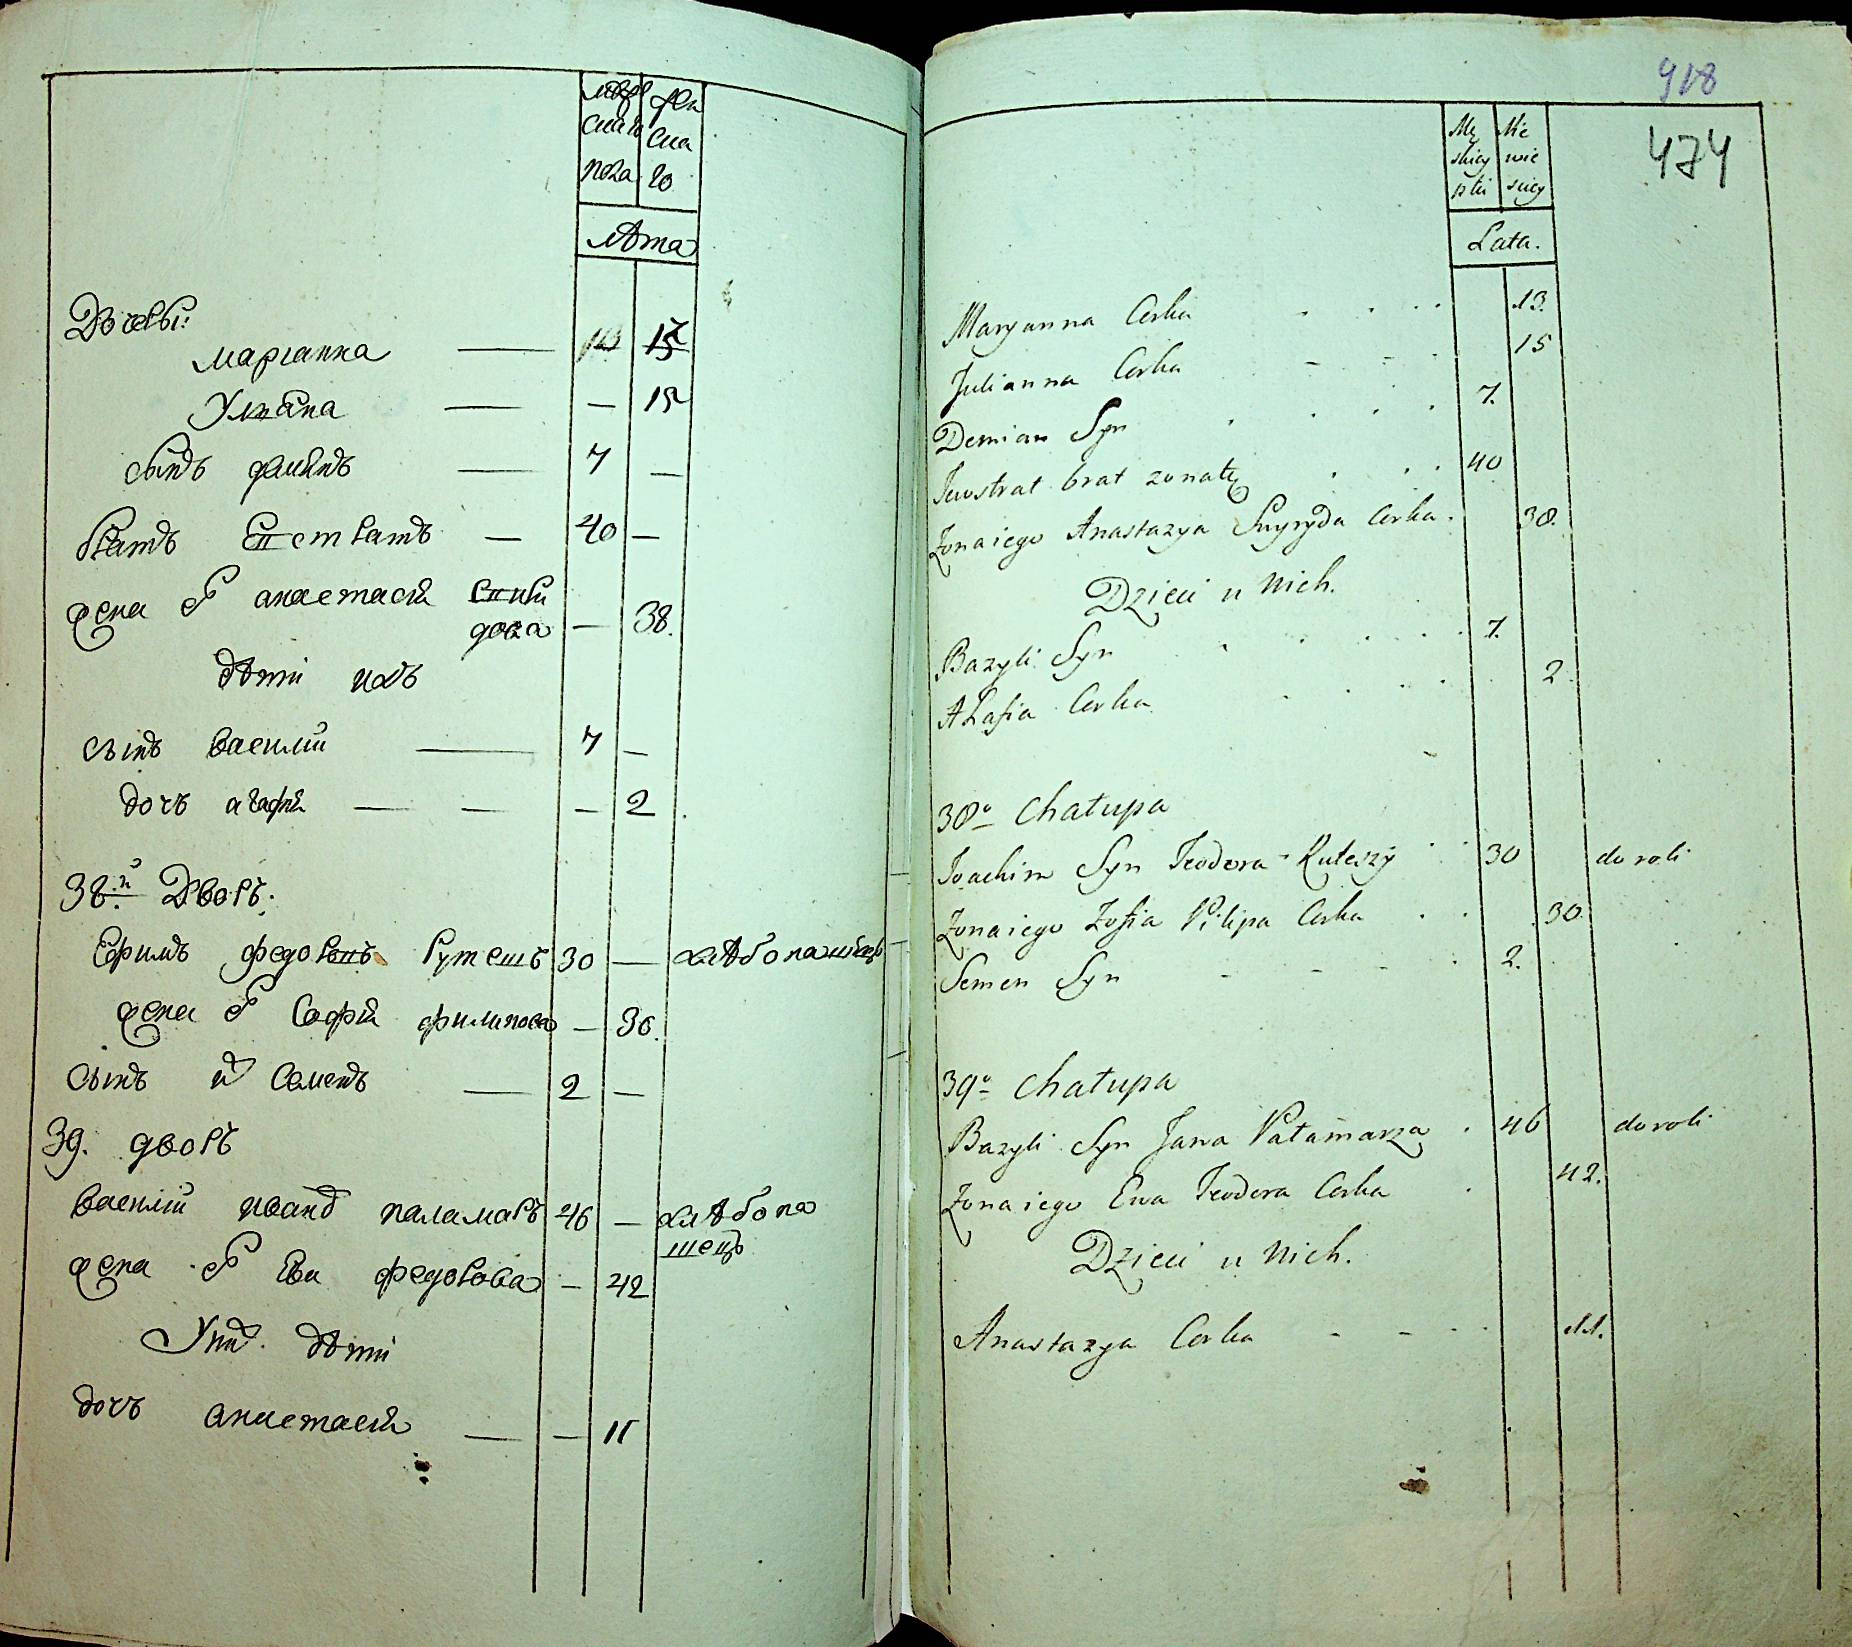 мѣже
ска
пола
жен
ска
го
лѣта
Дочеры:
марiанна — 15
Улiана — — 15
сынъ дамiанъ — 7 —
братъ Евстратъ — 40 —
жена его анастасiя спири
дова — 38.
дѣти ихъ
сынъ василiй — 7 —
дочь агафiя — — — 2
38.й Дворъ.
Ефимъ федоровъ Рутешъ 30 — хлѣбопашецъ
жена его Софiя филипова — 30.
сынъ ихъ Семенъ — 2 —
39. дворъ
василiй иванов паламаръ 46 — хлѣбопа
шецъ
жена его Ева федорова — 42
У них дѣти
дочь анастасiя — — 11
918
474
Mę
skiey
płci
Nie
wie
sciey
Lata.
Maryanna Corka . . . 13.
Julianna Corka - - - 15
Demian Syn . . . . 7.
Jewstrat brat zonaty . . . 40
Zona iego Anastazya Spyryda Corka . 38.
Dzieci u nich.
Bazyli Syn . . . . 7.
Ahafia Corka . . . 2
38o Chałupa
Joachim Syn Teodora Ruteszy . . 30 do roli
Zona iego Zofia Filipa Corka . . 30.
Semen Syn - - - . 2.
39o Chałupa
Bazyli Syn Jana Pałamarza . 46 do roli
Zona iego Ewa Teodora Corka . 42.
Dzieci u nich.
Anastazya Corka - - - 11.